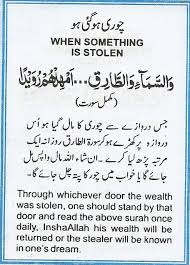 چوری ہوگئی ہو
WHEN SOMETHING
IS STOLEN
وَالسَّمَآءِ وَالطَّارِقِ...اَمْهِلْهُمْ رُوَيْدًا
(مکمل سورت)
جس دروازے سے چوری کا مال گیا ہو اُس
دروازہ پر کھڑے ہو کر سورۃ الطارق روزانہ ایک
مرتبہ پڑھ لیا کرے۔ ان شاء اللہ مال واپس مل
جائے گا یا خواب میں چور کا پتہ چل جائے گا۔
Through whichever door the wealth
was stolen, one should stand by that
door and read the above surah once
daily, InshaAllah his wealth will be
returned or the stealer will be known
in one's dream.